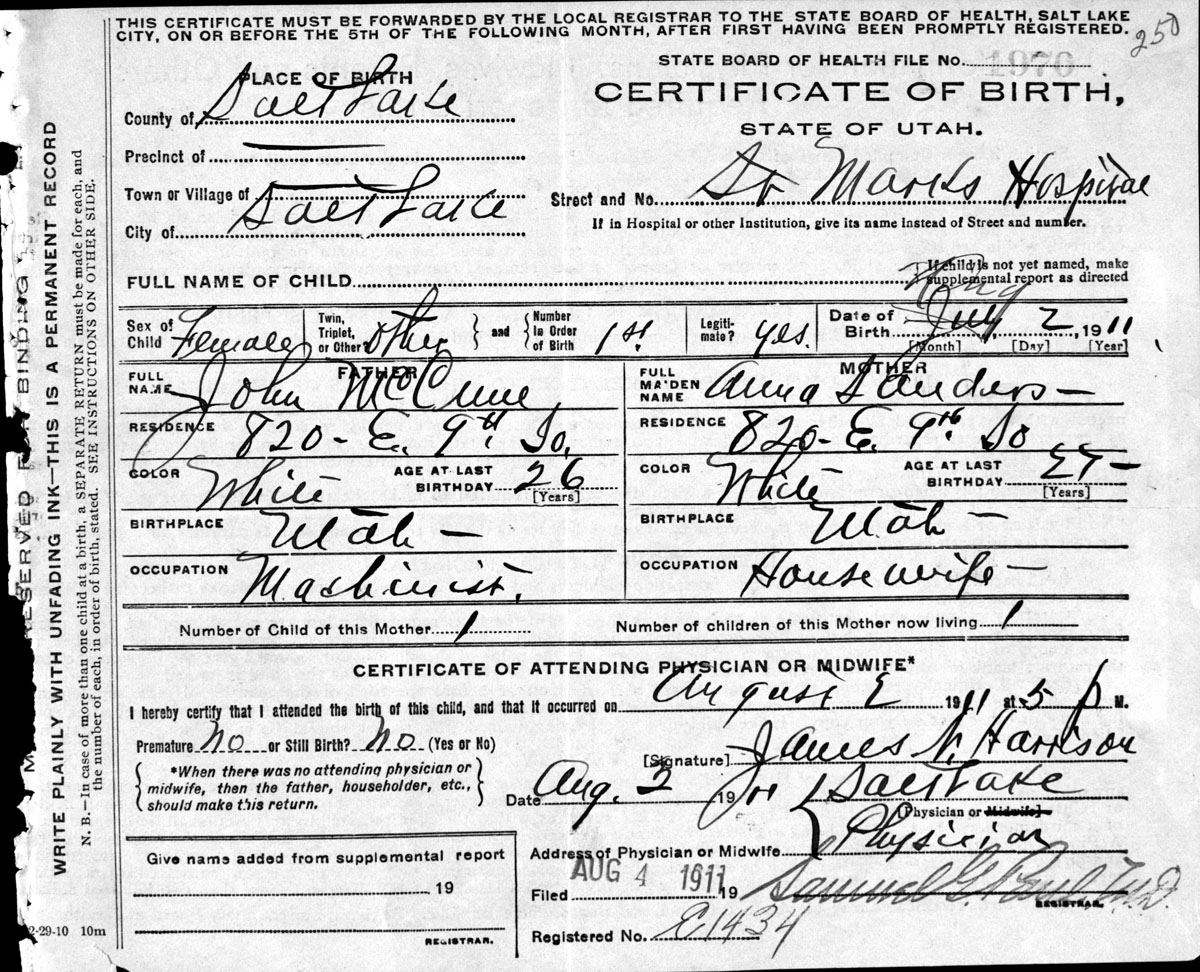 THIS CERTIFICATE MUST BE FORWARDED BY THE LOCAL REGISTRAR TO THE STATE BOARD OF HEALTH, SALT LAKE
CITY, ON OR BEFORE THE 5TH OF THE FOLLOWING MONTH, AFTER FIRST HAVING BEEN PROMPTLY REGISTERED.
250
STATE BOARD OF HEALTH FILE No. 1970
CERTIFICATE OF BIRTH,
STATE OF UTAH.
PLACE OF BIRTH
County of Salt Lake
Precinct of
Town or Village of
City of Salt Lake
Street and No. St Marks Hospital
If in Hospital or other Institution, give its name instead of Street and number.
FULL NAME OF CHILD
If child is not yet named, make
supplemental report as directed
Sex of Child Female
Twin, Triplet, or Other? other
and
Number In Order of Birth 1st.
Legiti-mate? yes.
Date of Birth Aug July 2, 1911
[Month] [Day] [Year]
FATHER
FULL NAME John McCune
RESIDENCE 820 - E. 9th So.
COLOR White
AGE AT LAST BIRTHDAY 26
[Years]
BIRTHPLACE Utah -
OCCUPATION Machinist.
MOTHER
FULL MAIDEN NAME Anna Sanders -
RESIDENCE 820 - E. 9th So
COLOR White
AGE AT LAST BIRTHDAY 27 -
[Years]
BIRTHPLACE Utah -
OCCUPATION Housewife -
Number of Child of this Mother 1
Number of children of this Mother now living 1
CERTIFICATE OF ATTENDING PHYSICIAN OR MIDWIFE*
I hereby certify that I attended the birth of this child, and that it occurred on August 2 1911 at 5 P M.
Premature No or Still Birth? No (Yes or No)
*When there was no attending physician or
midwife, then the father, householder, etc.,
should make this return.
[Signature] James N. Harrison
Date Aug. 2 1911
Salt Lake
[Physician or Midwife]
Address of Physician or Midwife Physician
Give name added from supplemental report
19
REGISTRAR.
2-29-10 10m
Filed AUG 4 1911 19
Samuel G. Paul M.D.
REGISTRAR.
Registered No. C1434
RESERVED FOR BINDING
WRITE PLAINLY WITH UNFADING INK—THIS IS A PERMANENT RECORD
N. B.—In case of more than one child at a birth, a SEPARATE RETURN must be made for each, and
the number of each, in order of birth, stated. SEE INSTRUCTIONS ON OTHER SIDE.